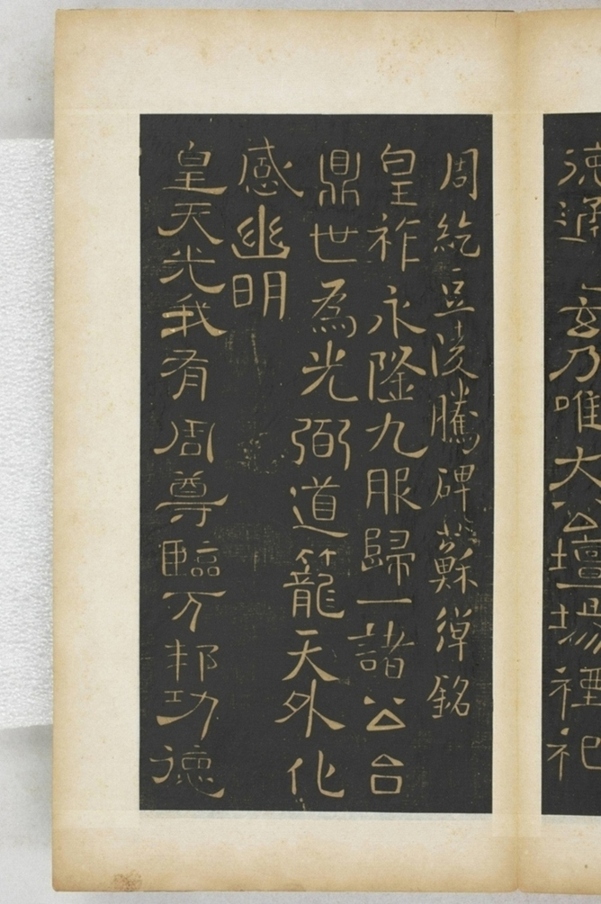 德通 玄乃唯大公壇場禋祀
周紇豆陵騰碑蘇綽銘
皇祚永隆九服歸一諸公台
鼎世為光弼道籠天外化
感幽明
皇天光我有周尊臨万邦功德